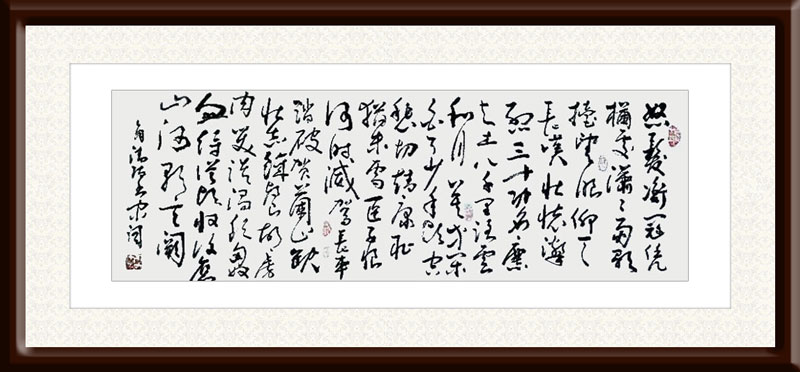 怒髮衝冠憑
欄處瀟々雨歇
抬望眼仰天
長嘆壯懷激
烈三十功名塵
與土八千里路雲
和月莫等閒
白了少年頭空
悲切靖康恥
猶未雪臣子恨
何時滅駕長車
踏破賀蘭山缺
壯志饑餐胡虜
肉笑談渴飲匈奴
血待從頭收拾舊
山河朝天闕